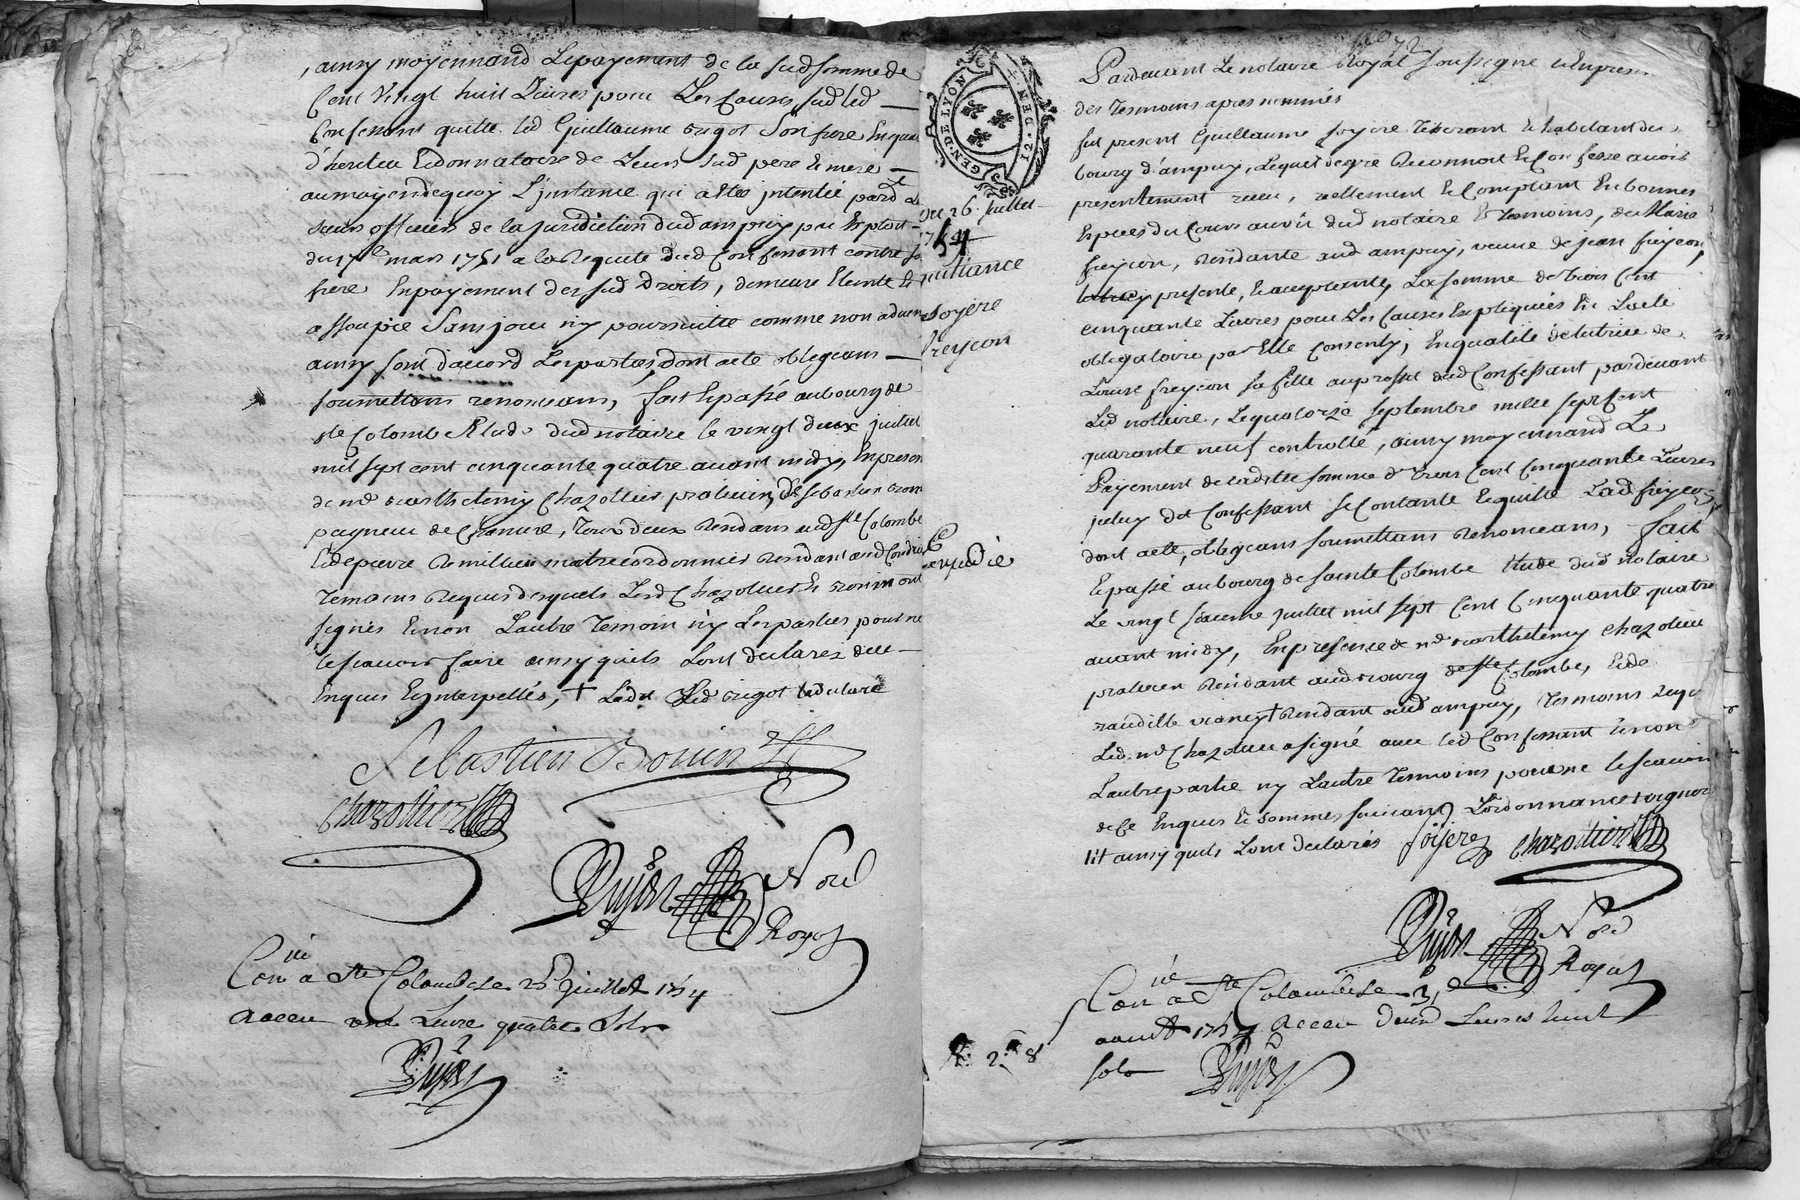 ainsy moyennand Lepayement de la sud somme de
Cent Vingt huit Livres pour Les Causes sud led
Confessant quitte led Guillaume Crigot son frere En qua
d'heritier Et donnatoire de Leurs sud pere Et mere
aumoyendequoy L'instance qui a Etes intentée pard
sieurs officiers de la juridiction dud ampuy par Exploit
du mars 1751 a la Requete dud Confessant contre
frere En payement des sud Droits, demeure Eteinte Et
assoupie Sans jour ny poursuitte comme non advenue
ainsy sont d'accord Les parties, dont acte obligeans
soumettans renonceans, fait Et passé au bourg de
ste Colombe Etude dud notaire le vingt deux juillet
mil sept cent cinquante quatre avant midy, En presen
de mre Barthelemy Chazottier praticien, Et sebastien
peigneur de Chanvre, Tous deux Residans aud ste Colombe
Et de pierre Remillier maitre cordonnier Residant aud Condrieu
Temoins Requis desquels Lesd Chazottier Et Bonin ont
signés Et non Lautre Temoin ny Les parties pour ne
le scavoir faire ainsy quils Lont declarez de ce
Enquis Et Interpellés, + Led Crigot
Sebastien Bonin
Chazottier
Dujon Nore
Royal
Con a Ste Colombe Le 25 juillet 1754
Receu une Livre quatre Sols
Dujon
GEN. DE LYON
Du 26 Juillet
1754
quittance
soyere
freycon
expedié
72
Pardevant Le notaire Royal soussigné Et En presen
des Tesmoins apres nommés
fut present Guillaume soyere Tisserant Et habitant du
bourg d'ampuy, Lequel de gré Reconnoit Et Confesse avoir
presentement receu, reellement Et Comptant En bonnes
Especes du Cours au vû dud notaire Et Temoins, de Marie
freycon, Residante aud ampuy, veuve de jean freycon,
presente, Et acceptante, La somme de trois Cent
cinquante Livres pour Les Causes Expliquées En Lacte
obligatoire par Elle Consenty, En qualité de tutrice de
Louise freycon sa fille au proffit dud Confessant pardevant
Led notaire, Le quatorze septembre mille sept cent
quarante neuf controllé, ainsy moyennand Le
Payement de ladite somme de Trois Cent Cinquante Livres
jceluy dt Confessant se Contante Et quitte Lad freycon
dont acte, obligeans soumettans Renonceans, fait
Et passé au bourg de sainte Colombe Etude dud notaire
Le vingt juillet mil sept Cent Cinquante quatre
avant midy, En presence de mre Barthelemy Chazottier
praticien Residant aud Bourg de ste Colombe, Et de
Residant aud ampuy, Tesmoins requis
Led mre Chazottier a signé avec led Confessant Et non
Lautre partie ny Lautre Temoins pour ne le scavoir
de ce Enquis Et Sommes suivant Lordonnance
ainsy quils Lont declarés soyere Chazottier
Dujon Nore
Royal
Con a Ste Colombe Le 3
aoust 1754 Receu Deux Livres huit
sols Dujon
R. 2. 8